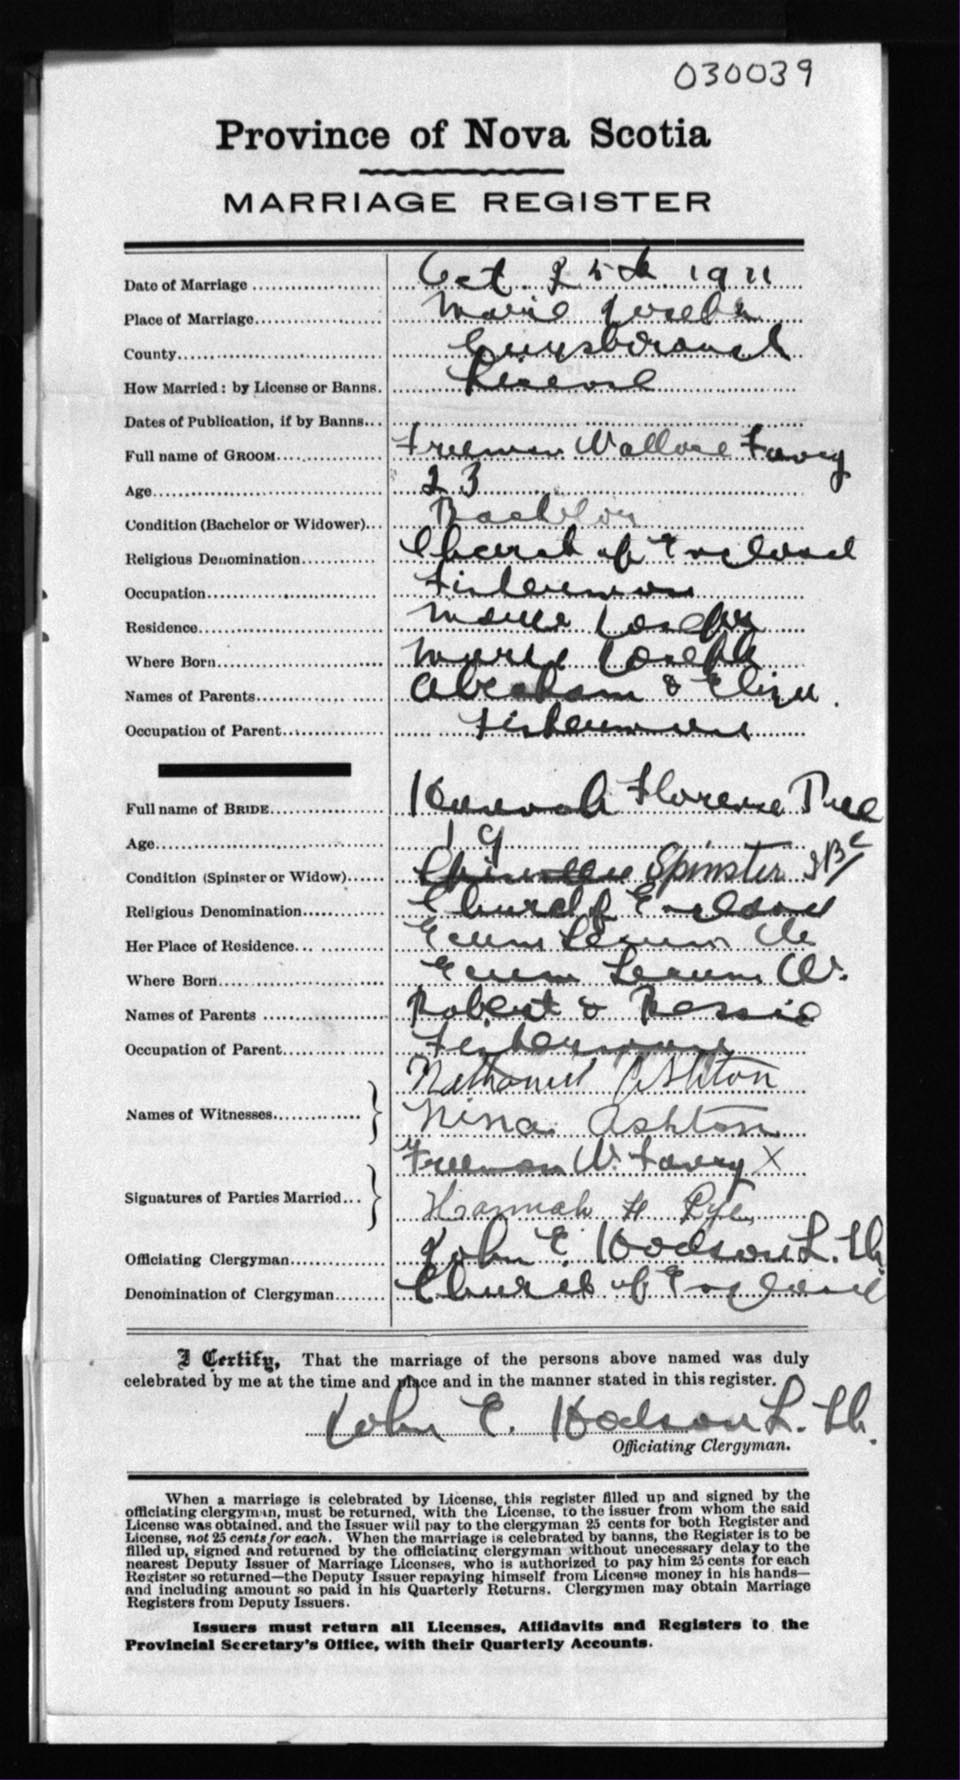 030039
Province of Nova Scotia
MARRIAGE REGISTER
Date of Marriage Oct. 25th 1911
Place of Marriage Marie Joseph
County Guysborough
How Married: by License or Banns. License
Dates of Publication, if by Banns
Full name of GROOM Freeman Wallace Favey
Age 23
Condition (Bachelor or Widower) Bachelor
Religious Denomination Church of England
Occupation Fisherman
Residence Marie Joseph
Where Born Marie Joseph
Names of Parents Abraham & Eliza.
Occupation of Parent Fisherman
Full name of BRIDE Hannah Florence
Age 19
Condition (Spinster or Widow) Spinster
Religious Denomination Church of England
Her Place of Residence Ecum Secum W
Where Born Ecum Secum W.
Names of Parents Robert & Bessie
Occupation of Parent Fisherman
Names of Witnesses Nathaniel Ashton
Nina Ashton
Signatures of Parties Married Freeman W. Favey X
Hannah F Pye
Officiating Clergyman John E. Hodson L. Th.
Denomination of Clergyman Church of England
I Certify, That the marriage of the persons above named was duly
celebrated by me at the time and place and in the manner stated in this register.
John E. Hodson L. Th.
Officiating Clergyman.
When a marriage is celebrated by License, this register filled up and signed by the
officiating clergyman, must be returned, with the License, to the issuer from whom the said
License was obtained, and the Issuer will pay to the clergyman 25 cents for both Register and
License, not 25 cents for each. When the marriage is celebrated by banns, the Register is to be
filled up, signed and returned by the officiating clergyman without unecessary delay to the
nearest Deputy Issuer of Marriage Licenses, who is authorized to pay him 25 cents for each
Register so returned—the Deputy Issuer repaying himself from License money in his hands—
and including amount so paid in his Quarterly Returns. Clergymen may obtain Marriage
Registers from Deputy Issuers.
Issuers must return all Licenses, Affidavits and Registers to the
Provincial Secretary's Office, with their Quarterly Accounts.